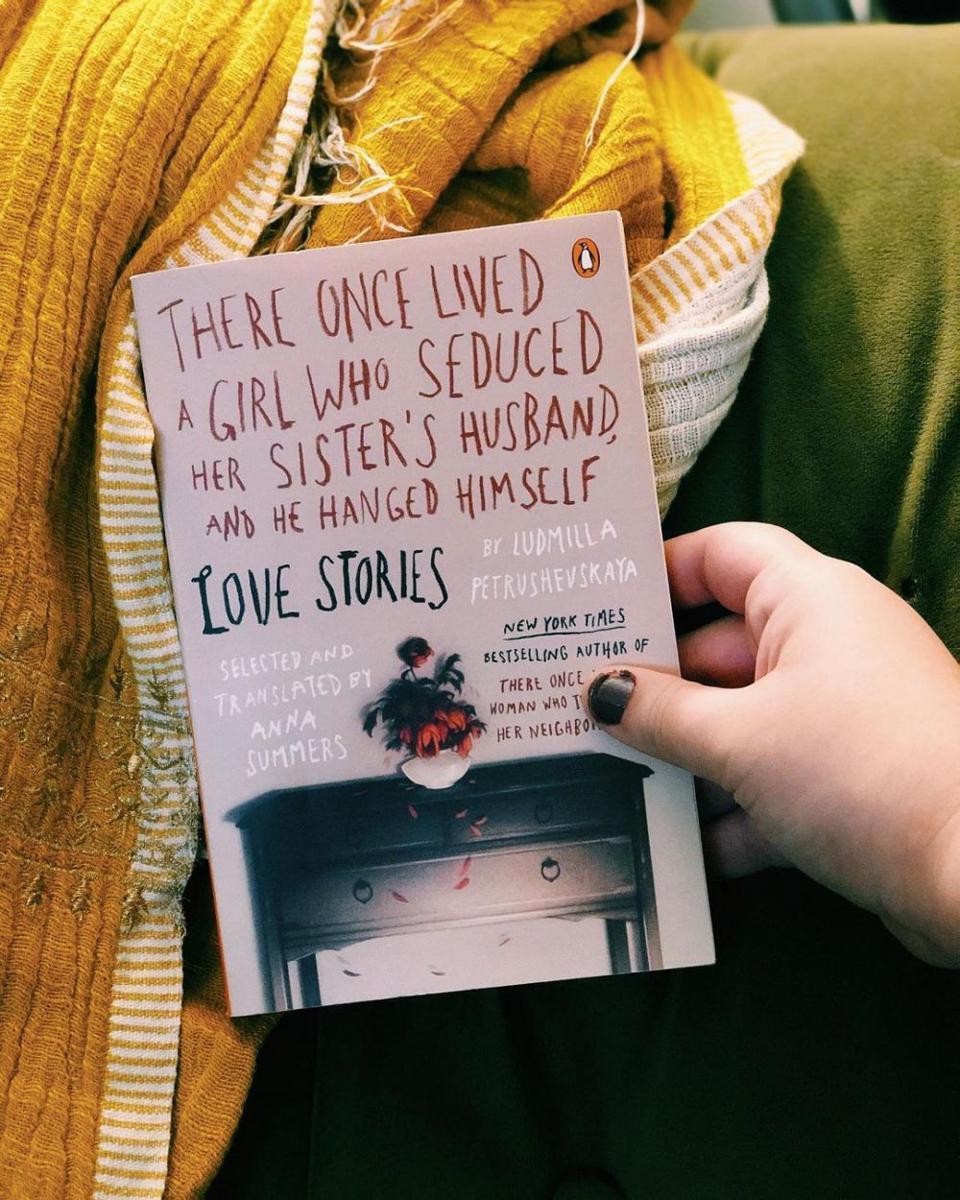 THERE ONCE LIVED
A GIRL WHO SEDUCED
HER SISTER'S HUSBAND,
AND HE HANGED HIMSELF
LOVE STORIES
BY LUDMILLA
PETRUSHEVSKAYA
NEW YORK TIMES
BESTSELLING AUTHOR OF
THERE ONCE
WOMAN WHO
HER
SELECTED AND
TRANSLATED BY
ANNA
SUMMERS